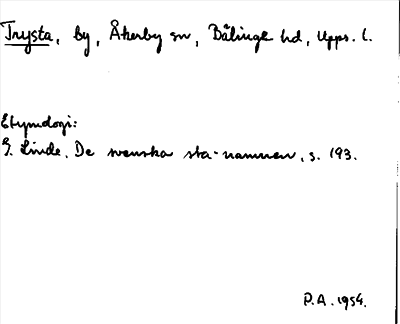 Trysta, by, Åkerby sn, Bälinge hd, Upps. l.
Etymologi:
G. Linde, De svenska sta-namnen, s. 193.
P.A. 1954.